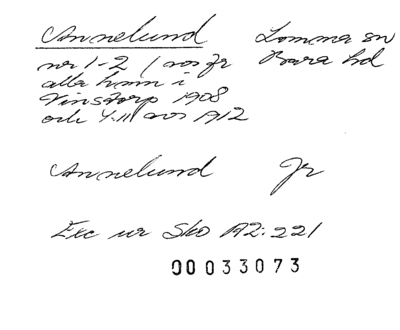 Annelund Lomma sn
nr 1-2 / avs fr Bara hd
alla hem i
Vinstorp 1908
och 4:11 avs 1912
Annelund Jr
Exc ur Sko A2:221
00033073